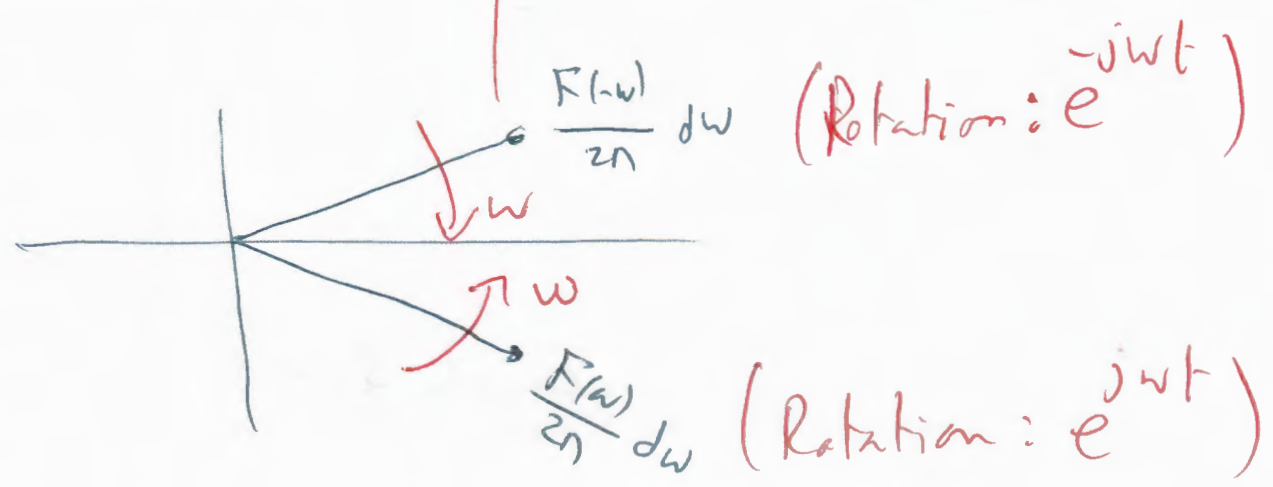 F(-ω)/2π dω (Rotation: e^-jωt)
ω
ω
F(ω)/2π dω (Rotation: e^jωt)